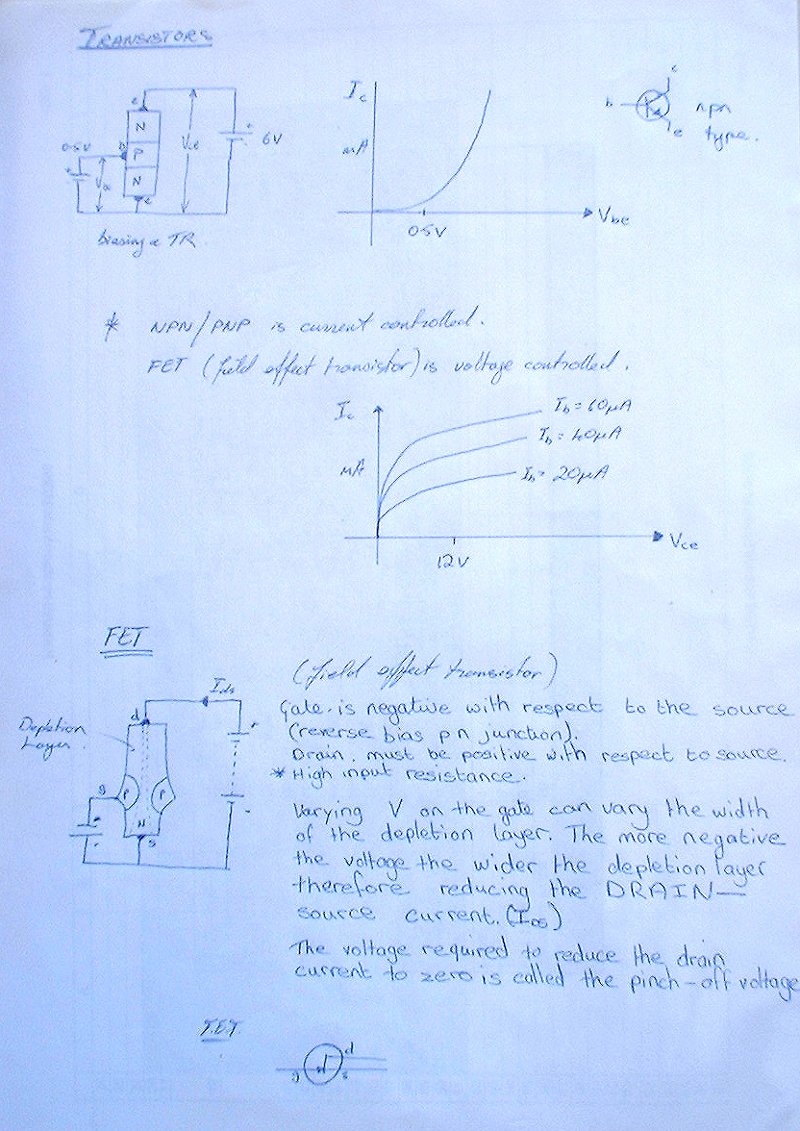 TRANSISTORS
c
N
P
N
b
e
0.5V
+
Vce
+
6V
biasing a TR.
Ic
mA
0.5V
Vbe
c
b
e
npn
type.
* NPN/PNP is current controlled.
FET (field effect transistor) is voltage controlled.
Ic
mA
Ib = 60µA
Ib = 40µA
Ib = 20µA
12V
Vce
FET
(field effect transistor)
Gate. is negative with respect to the source
(reverse bias pn junction).
Drain. must be positive with respect to source.
* High input resistance.
Varying V on the gate can vary the width
of the depletion layer. The more negative
the voltage the wider the depletion layer
therefore reducing the DRAIN—
source current. (IDS)
The voltage required to reduce the drain
current to zero is called the pinch-off voltage
Depletion
Layer.
Ids
d
+
g
P
P
N
s
-
d
g
s